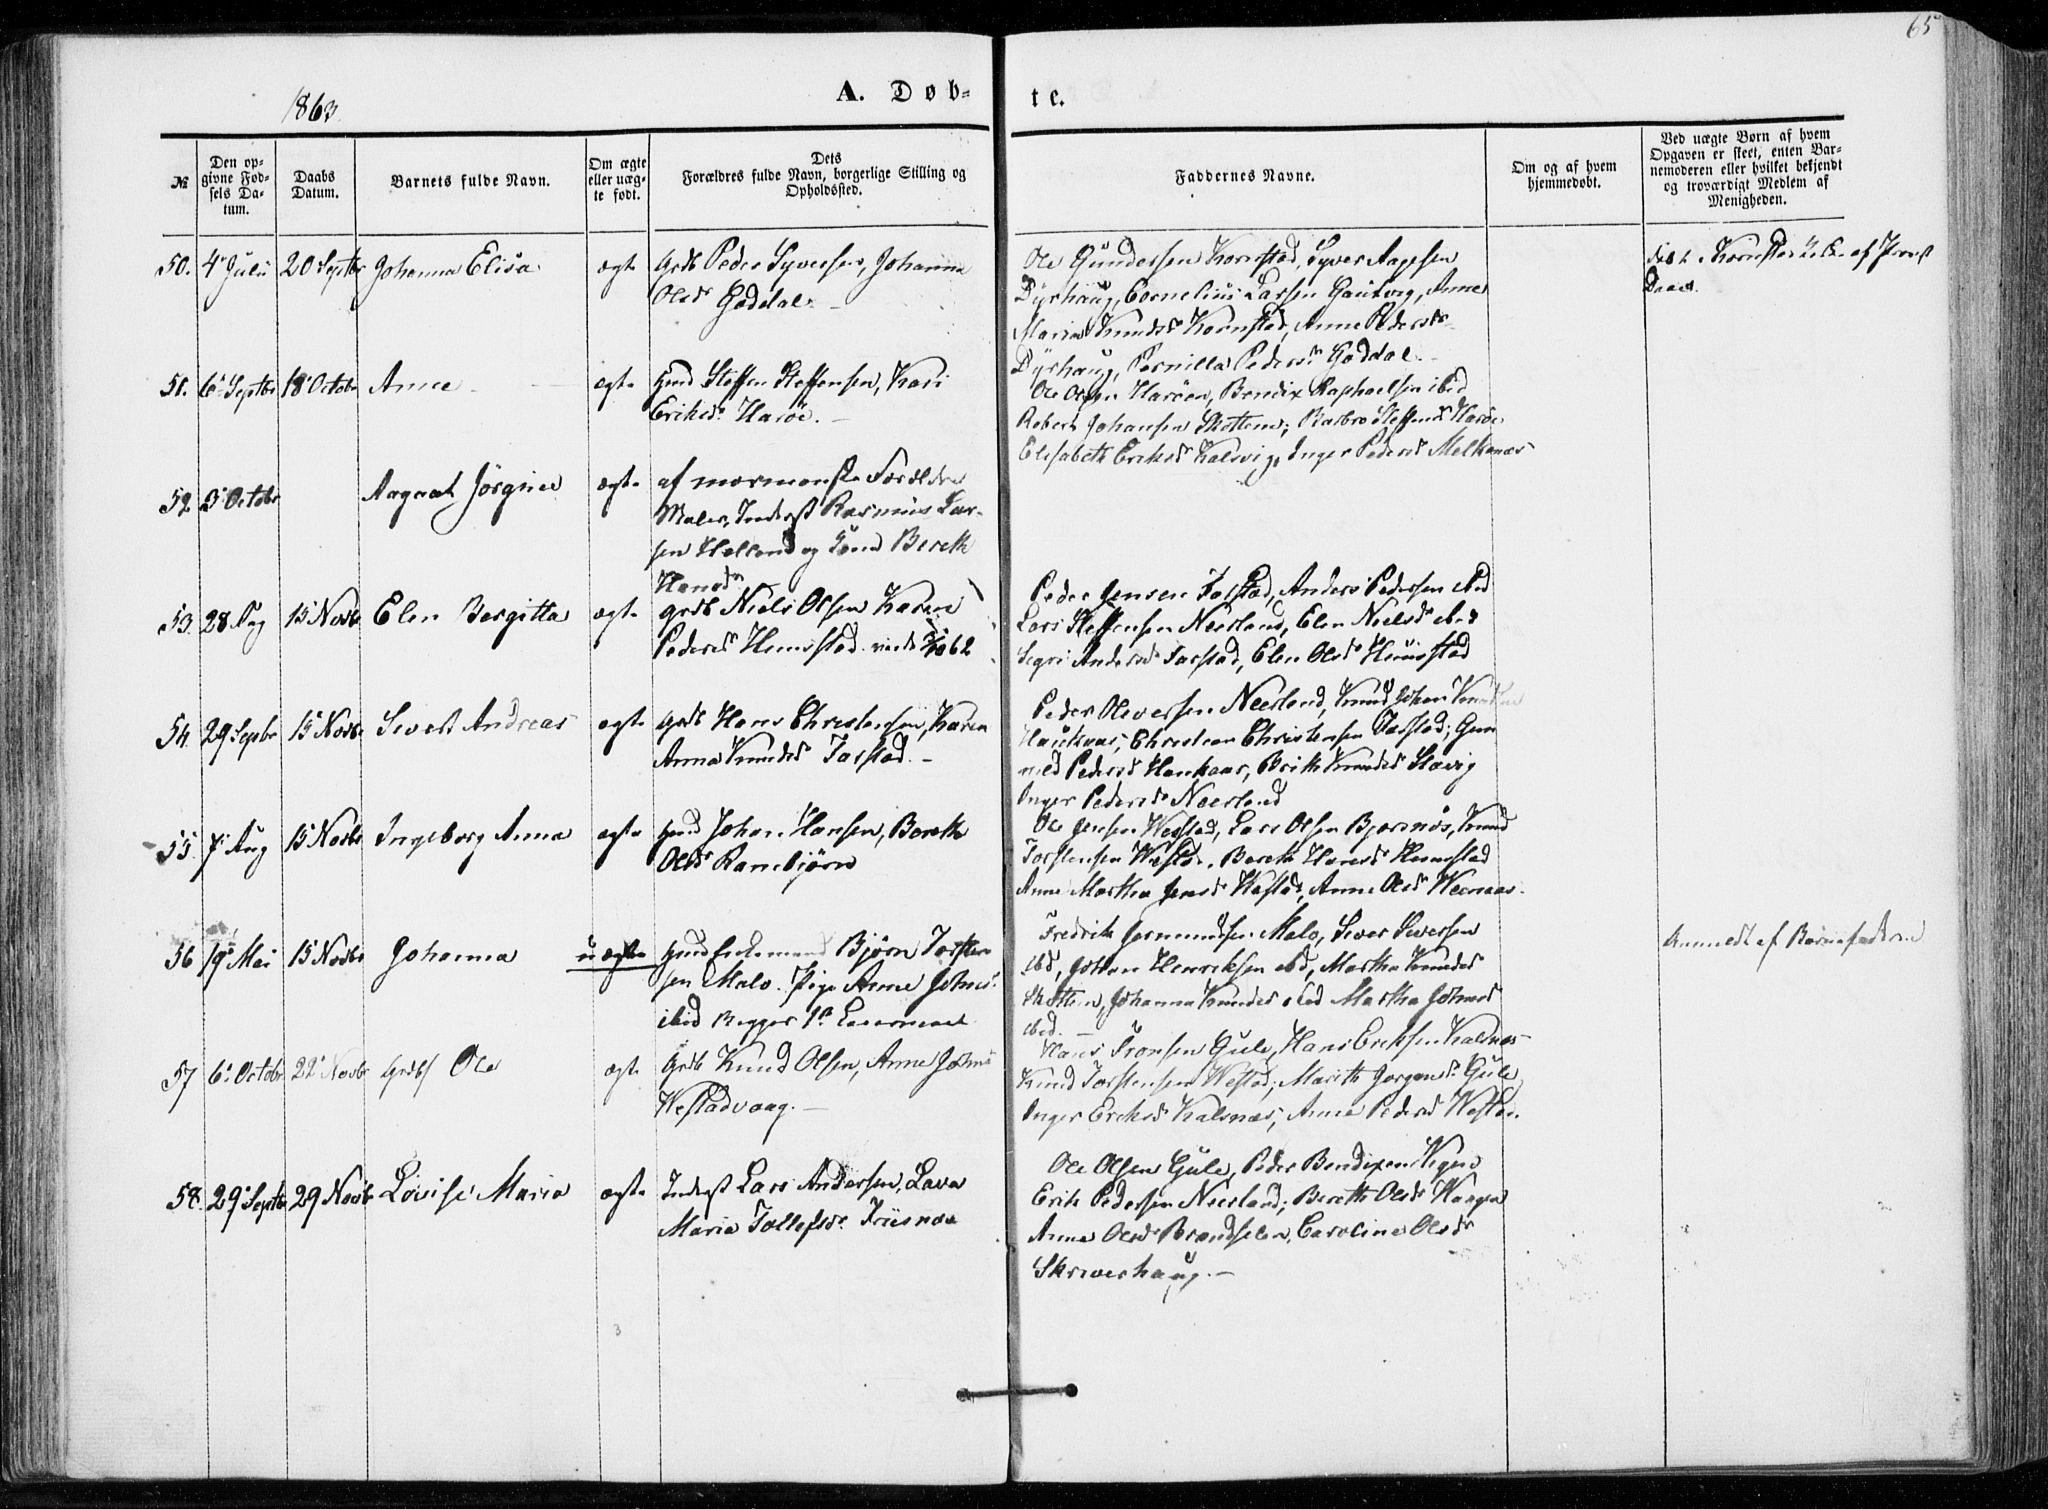 65
1863.
A. Døb-
te.
№
Den op-
givne Fød-
sels Da-
tum.
Daabs
Datum.
Barnets fulde Navn.
Om ægte
eller uæg-
te født.
Dets
Forældres fulde Navn, borgerlige Stilling og
Opholdssted.
Faddernes Navne.
Om og af hvem
hjemmedøbt.
Ved uægte Børn af hvem
Opgaven er skeet, enten Bar-
nemoderen eller hvilket bekjendt
og troværdigt Medlem af
Menigheden.
50. 4 Juli 20 Septbr Johanna Elisa ægte Grdb Peder Syversen, Johanna
Olsdr Goddal. –
Ole Gundersen Kornstad, Syver Aagesen
Dyrhaug, Cornelius Larsen Gautvig, Anne
Maria Knudsdr Kornstad, Anne Pedersdr
Dyrhaug, Pernilla Pedersdr Goddal. –
Kornstad af Provst
Daae.
51. 6 Septbr 18 Octobr Anne ægte Hmd Steffen Steffensen, Kari
Eriksdr Harøe. –
Ole Olsen Harøen, Bendix Raphaelsen ibid
Robert Johansen Skottem; Barbro Steffensdr Harøe
Elisabeth Eriksdr Kalsvig, Inger Pedersdr Melkenæs
52. 3 Octobr Aagaat Jørgine ægte af mormonske Forældre
Maler, Inderst Rasmus Lar-
sen Holland og Berett
Hansdr
53. 28 Aug 15 Novbr Elen Bergitta ægte Grdb Niels Olsen Karen
Pedersdr Hemsstad 62
Peder Jensen Tarstad, Anders Pedersen ibid
Lars Steffensen Neerland, Elen Nielsdr ibid
Segri Andersdr Tarstad, Elen Olsdr Hemsstad
54. 29 Septbr 15 Novbr Sivert Andreas ægte Grdb Hans Christensen, Karen
Anna Knudsdr Tarstad. –
Peder Oliversen Neerland, Knud Johan
Haukaas, Christian Christensen Tarstad; Gun
nild Pedersdr Haukaas, Brith Knudsdr Slavig
Inger Pedersdr Neerland
55. 7 Aug 15 Novbr Ingeborg Anna ægte Hmd Johan Hansen, Bereth
Olsdr Ranebjørn
Ole Jensen Westad, Lars Olsen Bjørnøs, Knud
Torstensen Westad, Bereth Hansdr Hemsstad
Anne Martha Jensdr Westad, Anne Olsdr
56 19 Mai 15 Novbr Johanna uægte Bjørn Torsten
sen Malo. Pige Anne Johnsdr
ibid Begges 1ste Leiermaal
Fredrik Germundsen Malo, Siver Siversen
ibd, Johan Henriksen ibd, Martha Knudsdr
Skottem, Johanna Knudsdr ibid Martha Johnsdr
ibid. –
Anmeldt af Barnefaderen
57 6 Octobr 22 Novbr Ole ægte Grdb Knud Olsen, Anne Johns
Westadvaag. –
Hans Iversen Gule, Hans Eriksen Kalsnæs
Knud Torstensen Westad; Marith Jørgensdr Gule
Inger Eriksdr Kalsnæs, Anne Pedersdr Westad.
58. 29 Septbr 29 Novbr Lovise Maria ægte Inderst Lars Andersen, Lava
Maria Tollefsdr
Ole Olsen Gule, Peder Bendixen
Erik Pedersen Neerland; Bereth Olsdr Vaagen
Anne Olsdr Caroline Olsdr
Skriverhaug. –